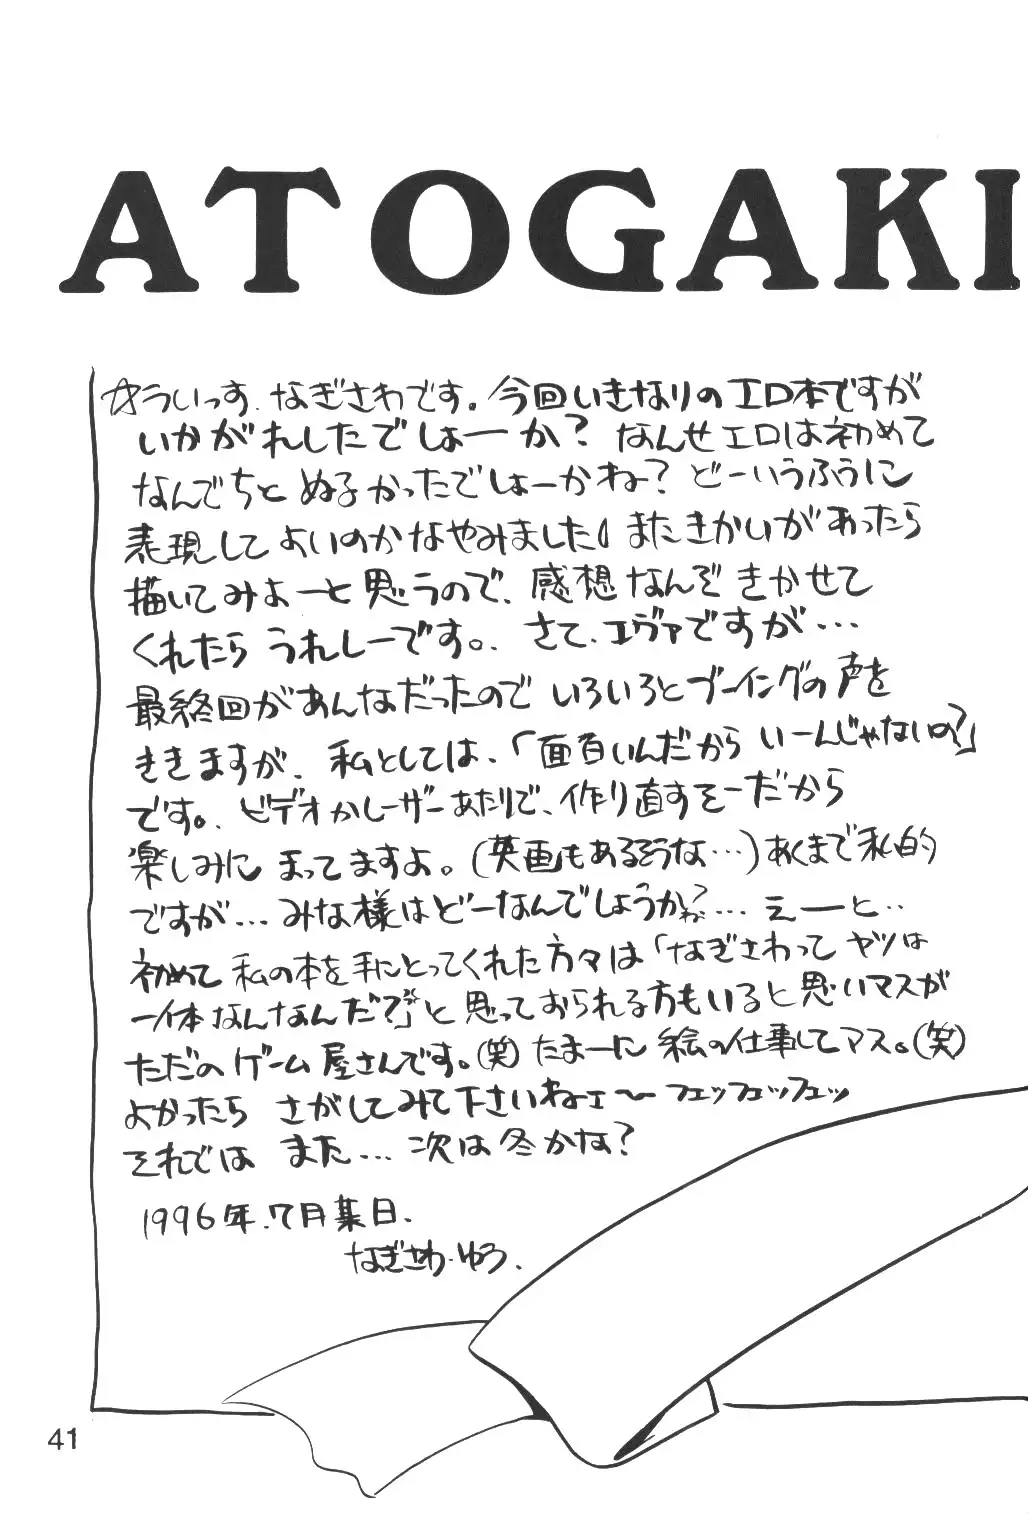 ATOGAKI
☆ういっす、なぎさわです。今回いきなりのエロ本ですが
いかがれしたでしょーか？なんせエロは初めて
なんでちとぬるかったでしょーかね？どーいうふうに
表現してよいのかなやみました。またきかいがあったら
描いてみよーと思うので、感想なんぞきかせて
くれたらうれしーです。さて、エヴァですが…
最終回があんなだったのでいろいろとブーイングの声を
ききますが、私としては、「面白いんだからいーんじゃないの？」
です。ビデオかレーザーあたりで、作り直すそーだから
楽しみにまってますよ。(英画もあるそうな…)あくまで私的
ですが…みな様はどーなんでしょうか？…えーと‥
初めて私の本を手にとってくれた方々は「なぎさわってヤツは
一体なんなんだ？」と思っておられる方もいると思いマスが
ただのゲーム屋さんです。(笑)たまーに絵の仕事してマス。(笑)
よかったらさがしてみて下さいねェ～フェッフェッフェッ
それではまた…次は冬かな？
1996年.7月某日.
なぎさわ.ゆう.
41